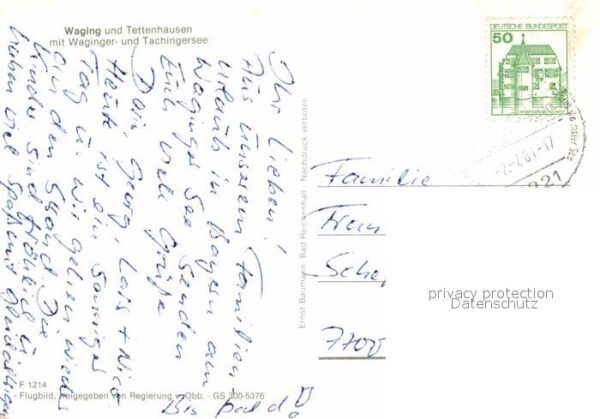 Waging und Tettenhausen
mit Waginger- und Tachingersee
Ihr Lieben!
Aus unserem Familien-
urlaub in Bayern am
Waginger See senden
Euch viele Grüße
Georg, Lars + Nico
Heute ist ein sonniger
Tag u. wir gehen wieder
an den Strand. Die
Kinder sind fröhlich u.
haben viel Spaß mit
Bis bald!
F 1214
Flugbild, freigegeben von Regierung v. Obb. · GS 300-5376
Ernst Baumann Bad Reichenhall Nachdruck verboten
50
DEUTSCHE BUNDESPOST
-2.-7.81-17
8221
Familie
privacy protection
Datenschutz